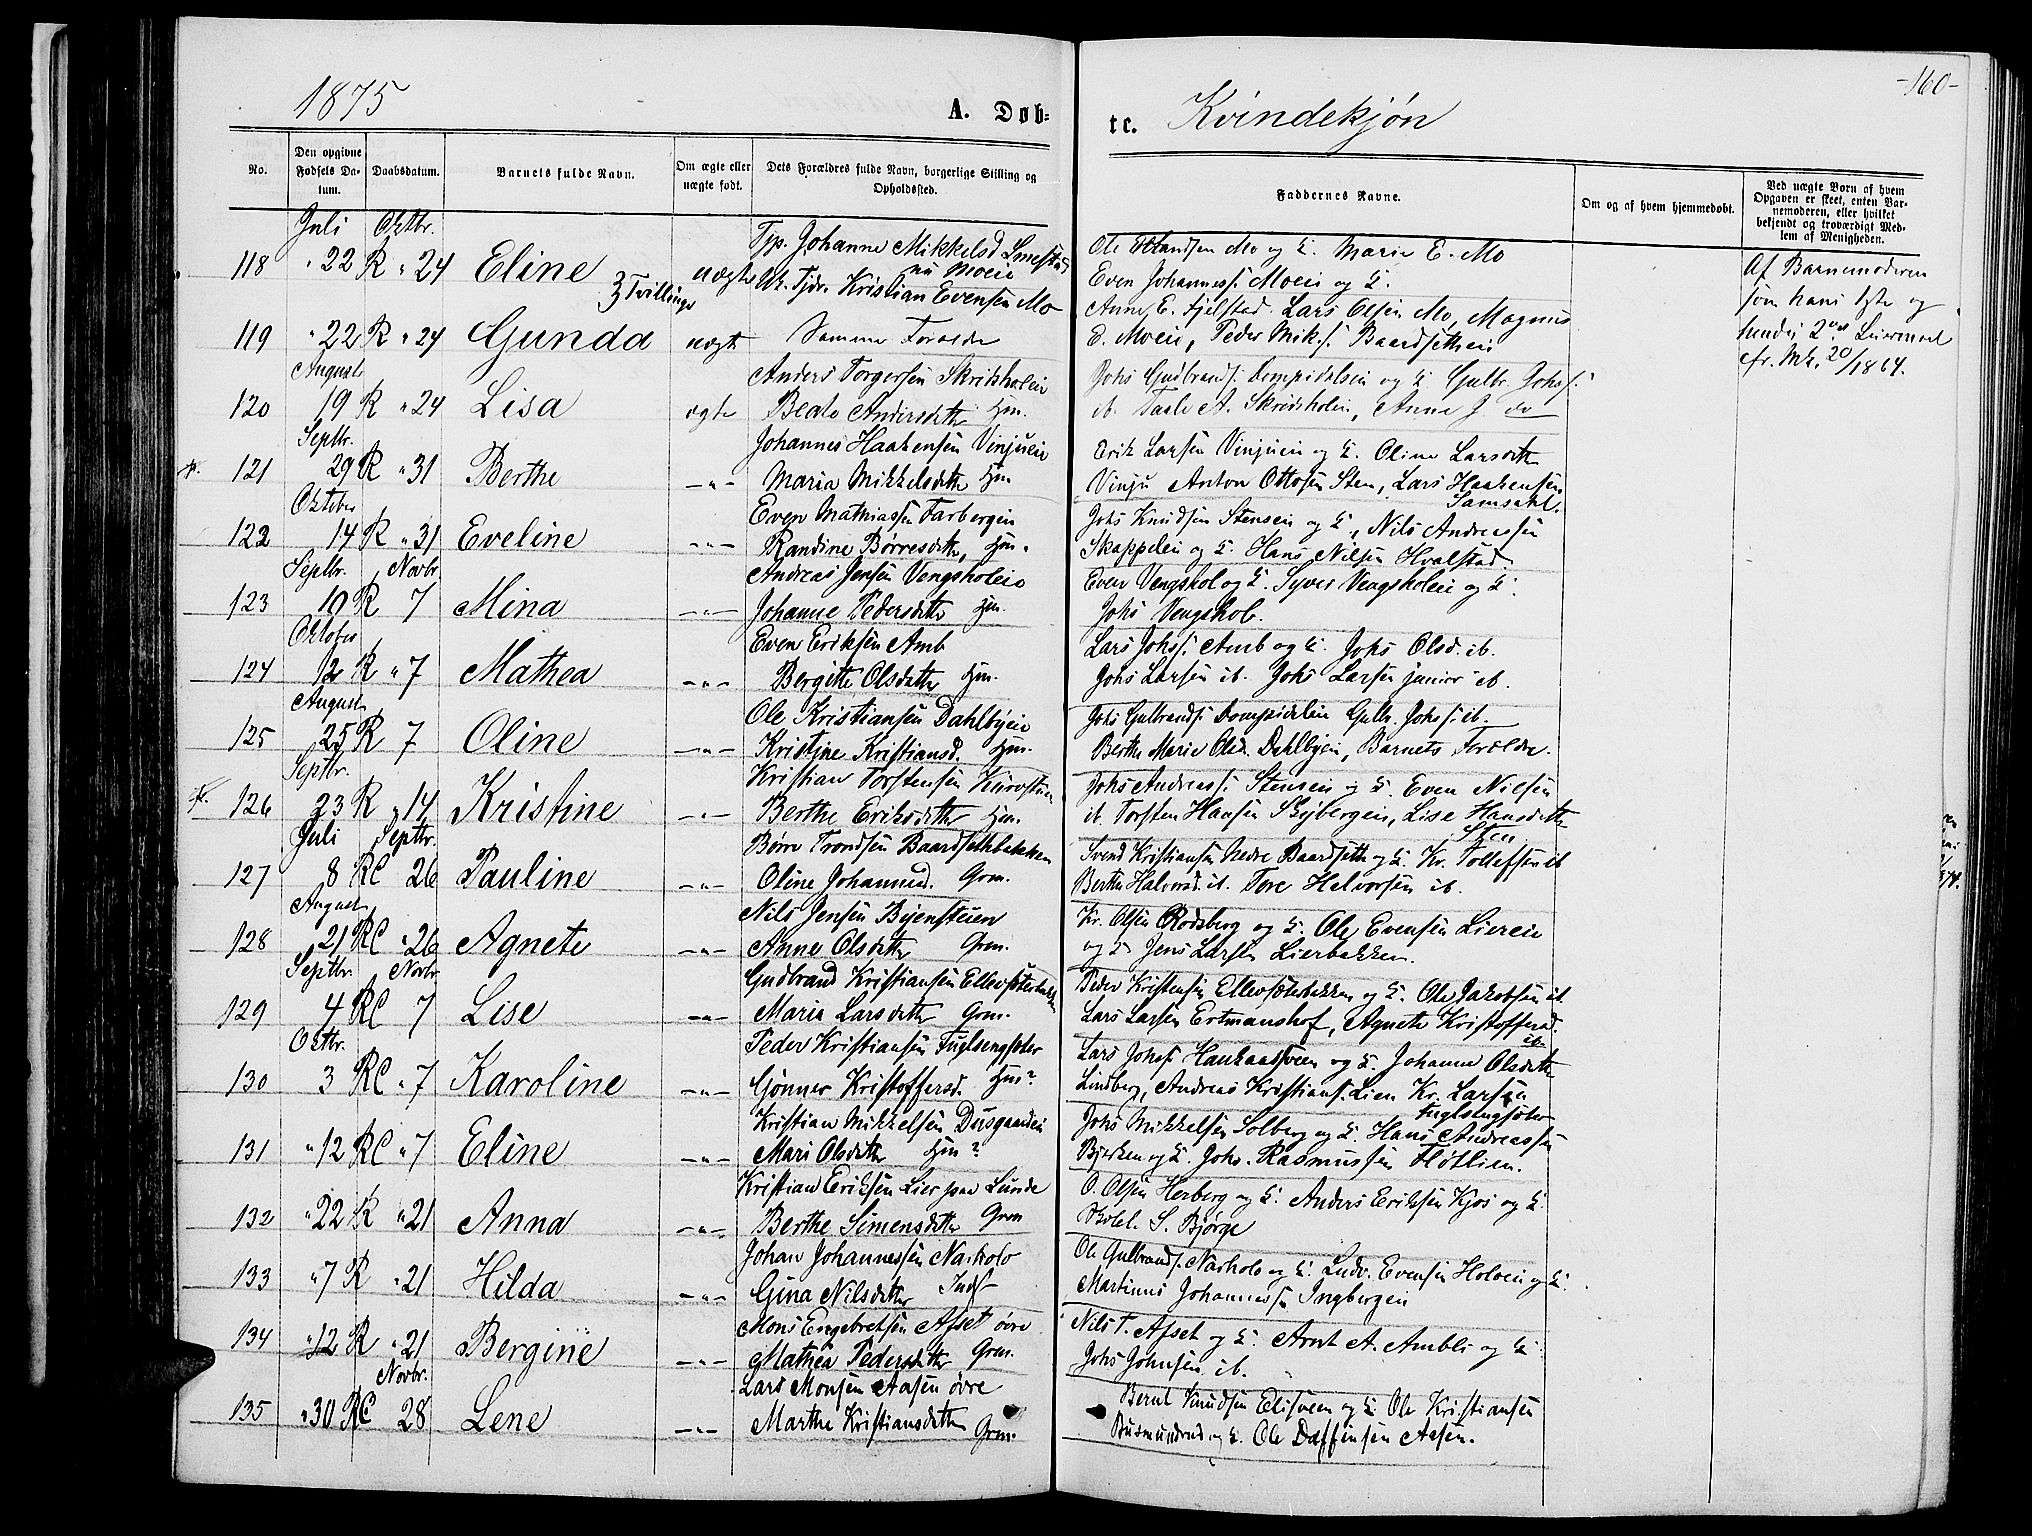 1875
A. Døb-
te. Kvindekjøn
-160-
No.
Den opgivne Fødsels Datum.
Daabsdatum.
Barnets fulde Navn.
Om ægte eller uægte født.
Dets Forældres fulde Navn, borgerlige Stilling og Opholdssted.
Faddernes Navne.
Om og af hvem hjemmedøbt.
Ved uægte Born af hvem Opgaven er skeet, enten Barnemoderen, eller hvilket bekjendt og troværdigt Medlem af Menigheden.
Juli Oktbr.
118 " 22 R " 24 Eline uægte Tjp. Johanne Mikkelsd
Uk. Tjdr. Kristian Evensen Mo
Tvillinge
Mo og E. Marie E. Mo
Even Johannesf. Moeie og E.
Af Barnemoderen
som hans 1ste og
hendes 2det Leiermaal
cfr. Mk. 20/1864.
119 " 22 R " 24 Gunda uægte Samme Forældre
Anne E. Fjelstad. Lars Olsen Mo, Magnus
E. Moeie, Peder Mik.s. Baardsetheie
August
120 19 R " 24 Lisa ægte Anders Torgersen
Beate Andersdatter Hm.
Johs Gudbrands. og E. Gulbr. Johs f.
ib. Taale A. Anne J. do
Septbr.
121 29 R " 31 Berthe -"- Johannes Haakensen Vinjueie
Maria Mikkelsdatter Hm
Erik Larsen Vinjueie og E. Oline Larsdatter
Vinju Anton Ottosen Sten, Lars Haakensen
Samsahl.
Oktober
122 14 R " 31 Eveline -"- Even Mathiassen Farbergeie
Randine Børresdatter, Hm.
Johs Knudsen Stenseie og E, Nils Andreassen
og E. Hans Nilsen Hvalstad.
Septbr. Novbr.
123 10 R 7 Mina -"- Andreas Jensen Vengsholeie
Johanne Pedersdatter Hm.
Even Vengshol og E. Syver Vengsholeie og E.
Johs Vengshol.
Oktober
124 12 R " 7 Mathea -"- Even Eriksen Amb
Bergitte Olsdatter Hm.
Lars Johs f. Amb og E. Johs Olsd. ib.
Johs Larsen ib. Johs Larsen junior ib.
August
125 25 R 7 Oline -"- Ole Kristiansen Dahlbyeie
Kristine Kristiansd. Hm.
Johs Gulbrands. Gulbr. Johs f. ib.
Berthe Marie Olsd. Dahlbyeie, Barnets Forældre.
Septbr.
126 23 R " 14 Kristine -"- Kristian Torstensen
Berthe Eriksdatter Hm.
Johs Andreass. Stenseie og E. Even Nielsen
ib. Torsten Hansen Lise Hansdatter
Sten
Juli Septbr.
127 8 RC 26 Pauline -"- Børre Trondsen Baardsethbakken
Oline Johannesd. Grm.
Svend Kristiansen Nedre Baardseth og E. Kr. Tollefsen ib
Berthe Halvorsd. ib. Tore Halvorsen ib.
August
128 21 RC " 26 Agnete -"- Nils Jensen
Anne Olsdatter Grm.
Kr. Olsen Rodsberg og E. Ole Evensen Liereie
og E Jens Larsen Lierbakken.
Septbr. Novbr.
129 4 RC 7 Lise -"- Gudbrand Kristiansen
Maria Larsdatter Grm.
Peder Kristensen og E. Ole Jakobsen ib.
Lars Larsen Ertmanshof, Agnete Kristoffersd.
ib.
Oktbr.
130 3 RC " 7 Karoline -"- Peder Kristiansen Fuglsengsøter
Gønner Kristoffersd. Hm?
Lars Johs f. og E. Johanne Olsdatter
Lindberg, Andreas Kristians. Lien Kr. Larsen
Fuglsengsøter
131 " 12 RC " 7 Eline -"- Kristian Mikkelsen
Mari Olsdatter Hm?
Johs Mikkelsen Solberg og E. Hans Andreassen
og E. Johs. Rasmussen Fløtlien.
132 " 22 R " 21 Anna -"- Kristian Eriksen Lier paa Lunde
Berthe Simensdatter Grm
O. Olsen Herberg og E. Anders Eriksen Kjos og E.
S. Bjørge
133 " 7 R " 21 Hilda -"- Johan Johannessen Narholo
Gina Nilsdatter Inds
Ole Gulbrands. Narholo og E. Ludv. Evensen Holoeie og E.
Martinus Johannessen Ingbergeie
134 " 12 R " 21 Bergine -"- Mons Engebretsen Afset øvre
Mathea Pedersdatter Grm.
Nils T. Afset og E. Arnt A. Ambli og E
Johs Johnsen ib.
Novbr.
135 " 30 RC 28 Lene -"- Lars Monsen Aasen øvre
Marthe Kristiansdatter Grm.
Bernt Knudsen og E. Ole Kristiansen
og E. Ole Aasen.